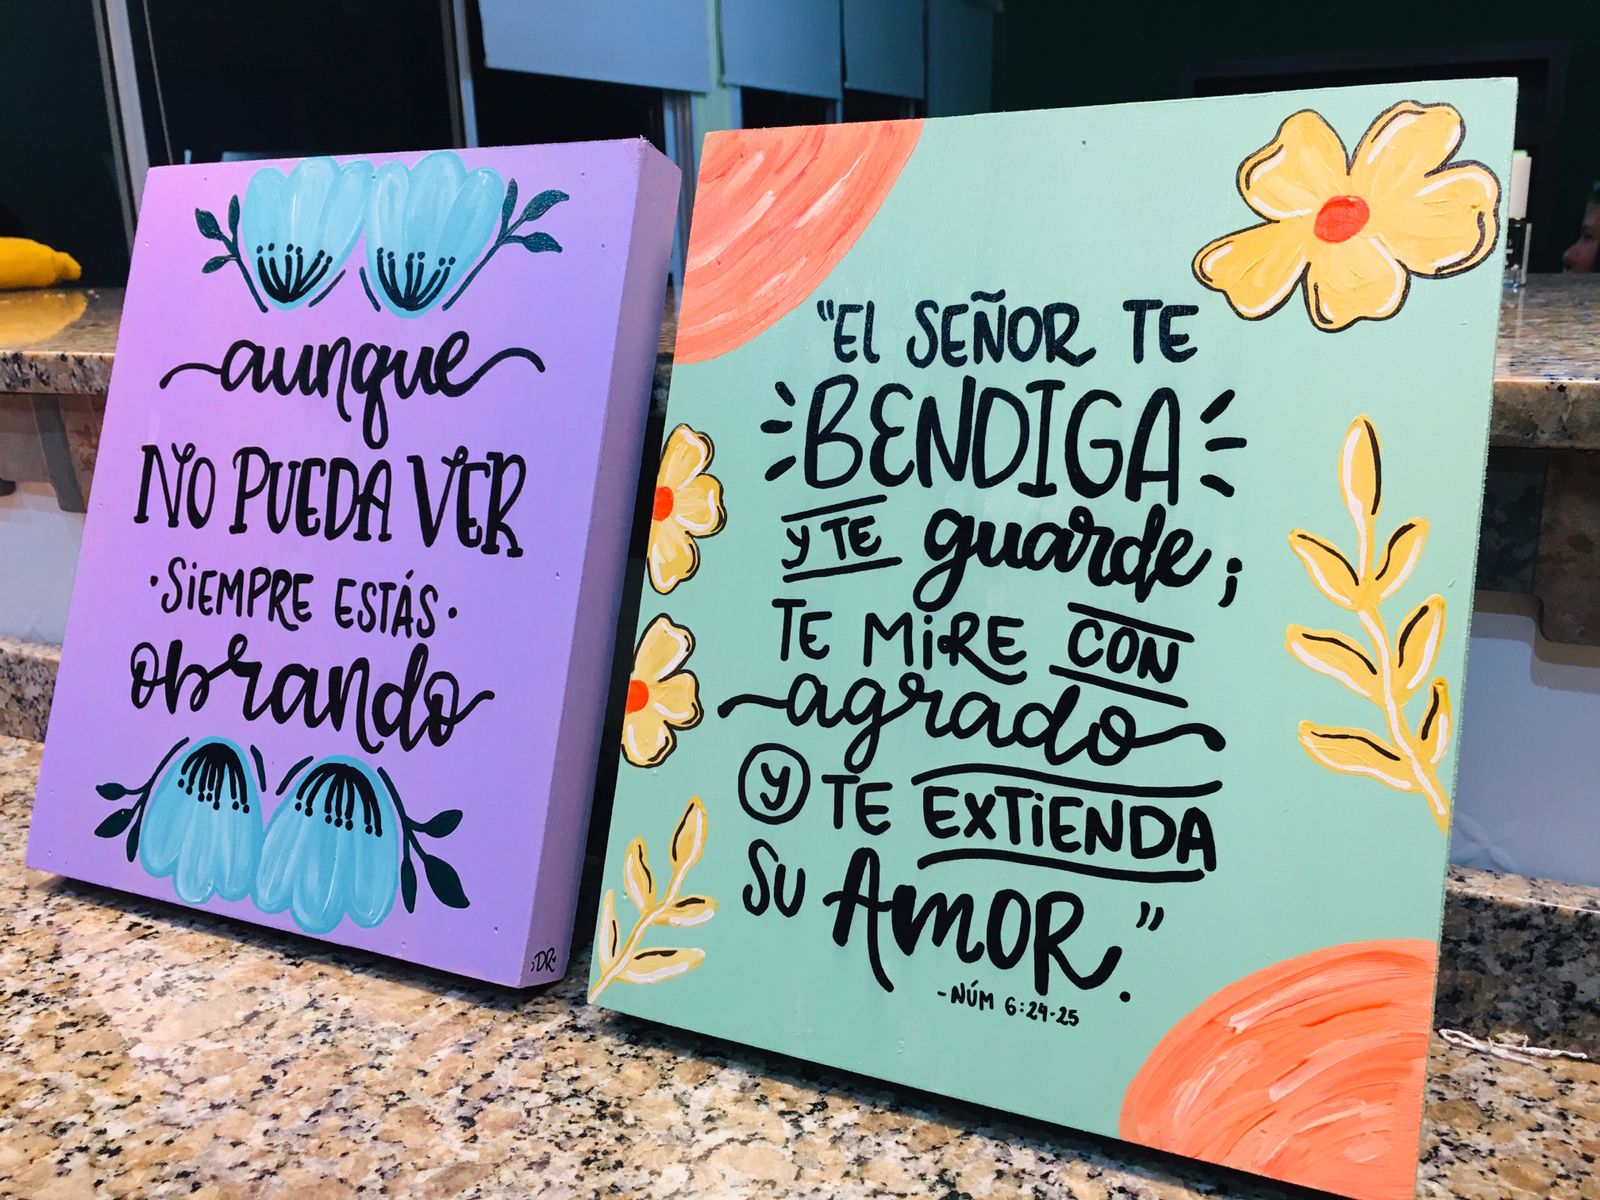 aunque
NO PUEDA VER
·SiEMPRE ESTÁS·
obrando
·DR·
"El SEÑOR TE
BENDIGA
y TE guarde;
TE MiRE CON
agrado
y TE EXTiENDA
SU AMOR."
-NÚM 6:24-25